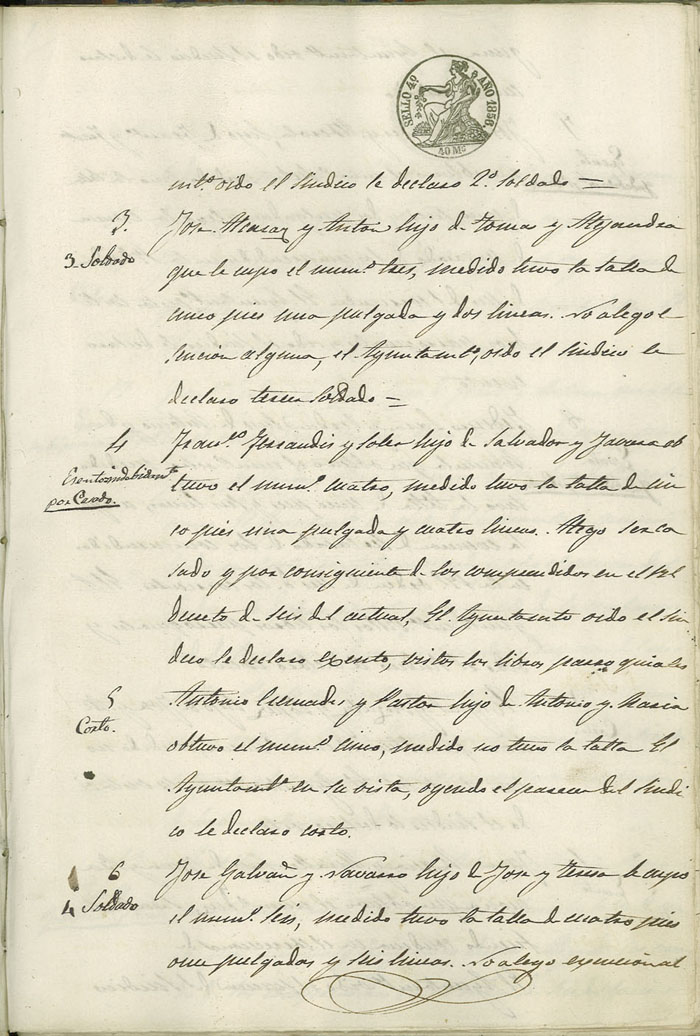 SELLO 4º AÑO 1858.
40 Ms
mtº oido el Sindico le declaro 2º Soldado =
3.
3. Soldado
Jose y Anton hijo de Tomas y Alejandra
que le cupo el numº tres, medido tuvo la talla de
cinco pies una pulgada y dos lineas. No alego e
sencion alguna, el Ayuntamtº, oido el Sindico le
declaro tercer Soldado =
4
Esento indebidamte
por Casado.
Francco Ferrandis y Soler hijo de Salvador y ob
tuvo el numº cuatro, medido tuvo la talla de cin
co pies una pulgada y cuatro lineas. Alego ser ca
sado y por consiguiente de los comprendidos en el Rl
decreto de seis del actual, El Ayuntamto oido el Sin
dico le declaro exento, vistos los libros parroquiales
5
Corto.
Antonio Cremades y Pastor hijo de Antonio y Maria
obtuvo el numº cinco, medido no tuvo la talla El
Ayuntamtº en su vista, oyendo el parecer del Sindi
co le declaro corto.
6
4 Soldado
Jose Galvañ y Navarro hijo de Jose y Teresa le cupo
el numº seis, medido tuvo la talla de cuatro pies
once pulgadas y seis lineas. No alego exencion al